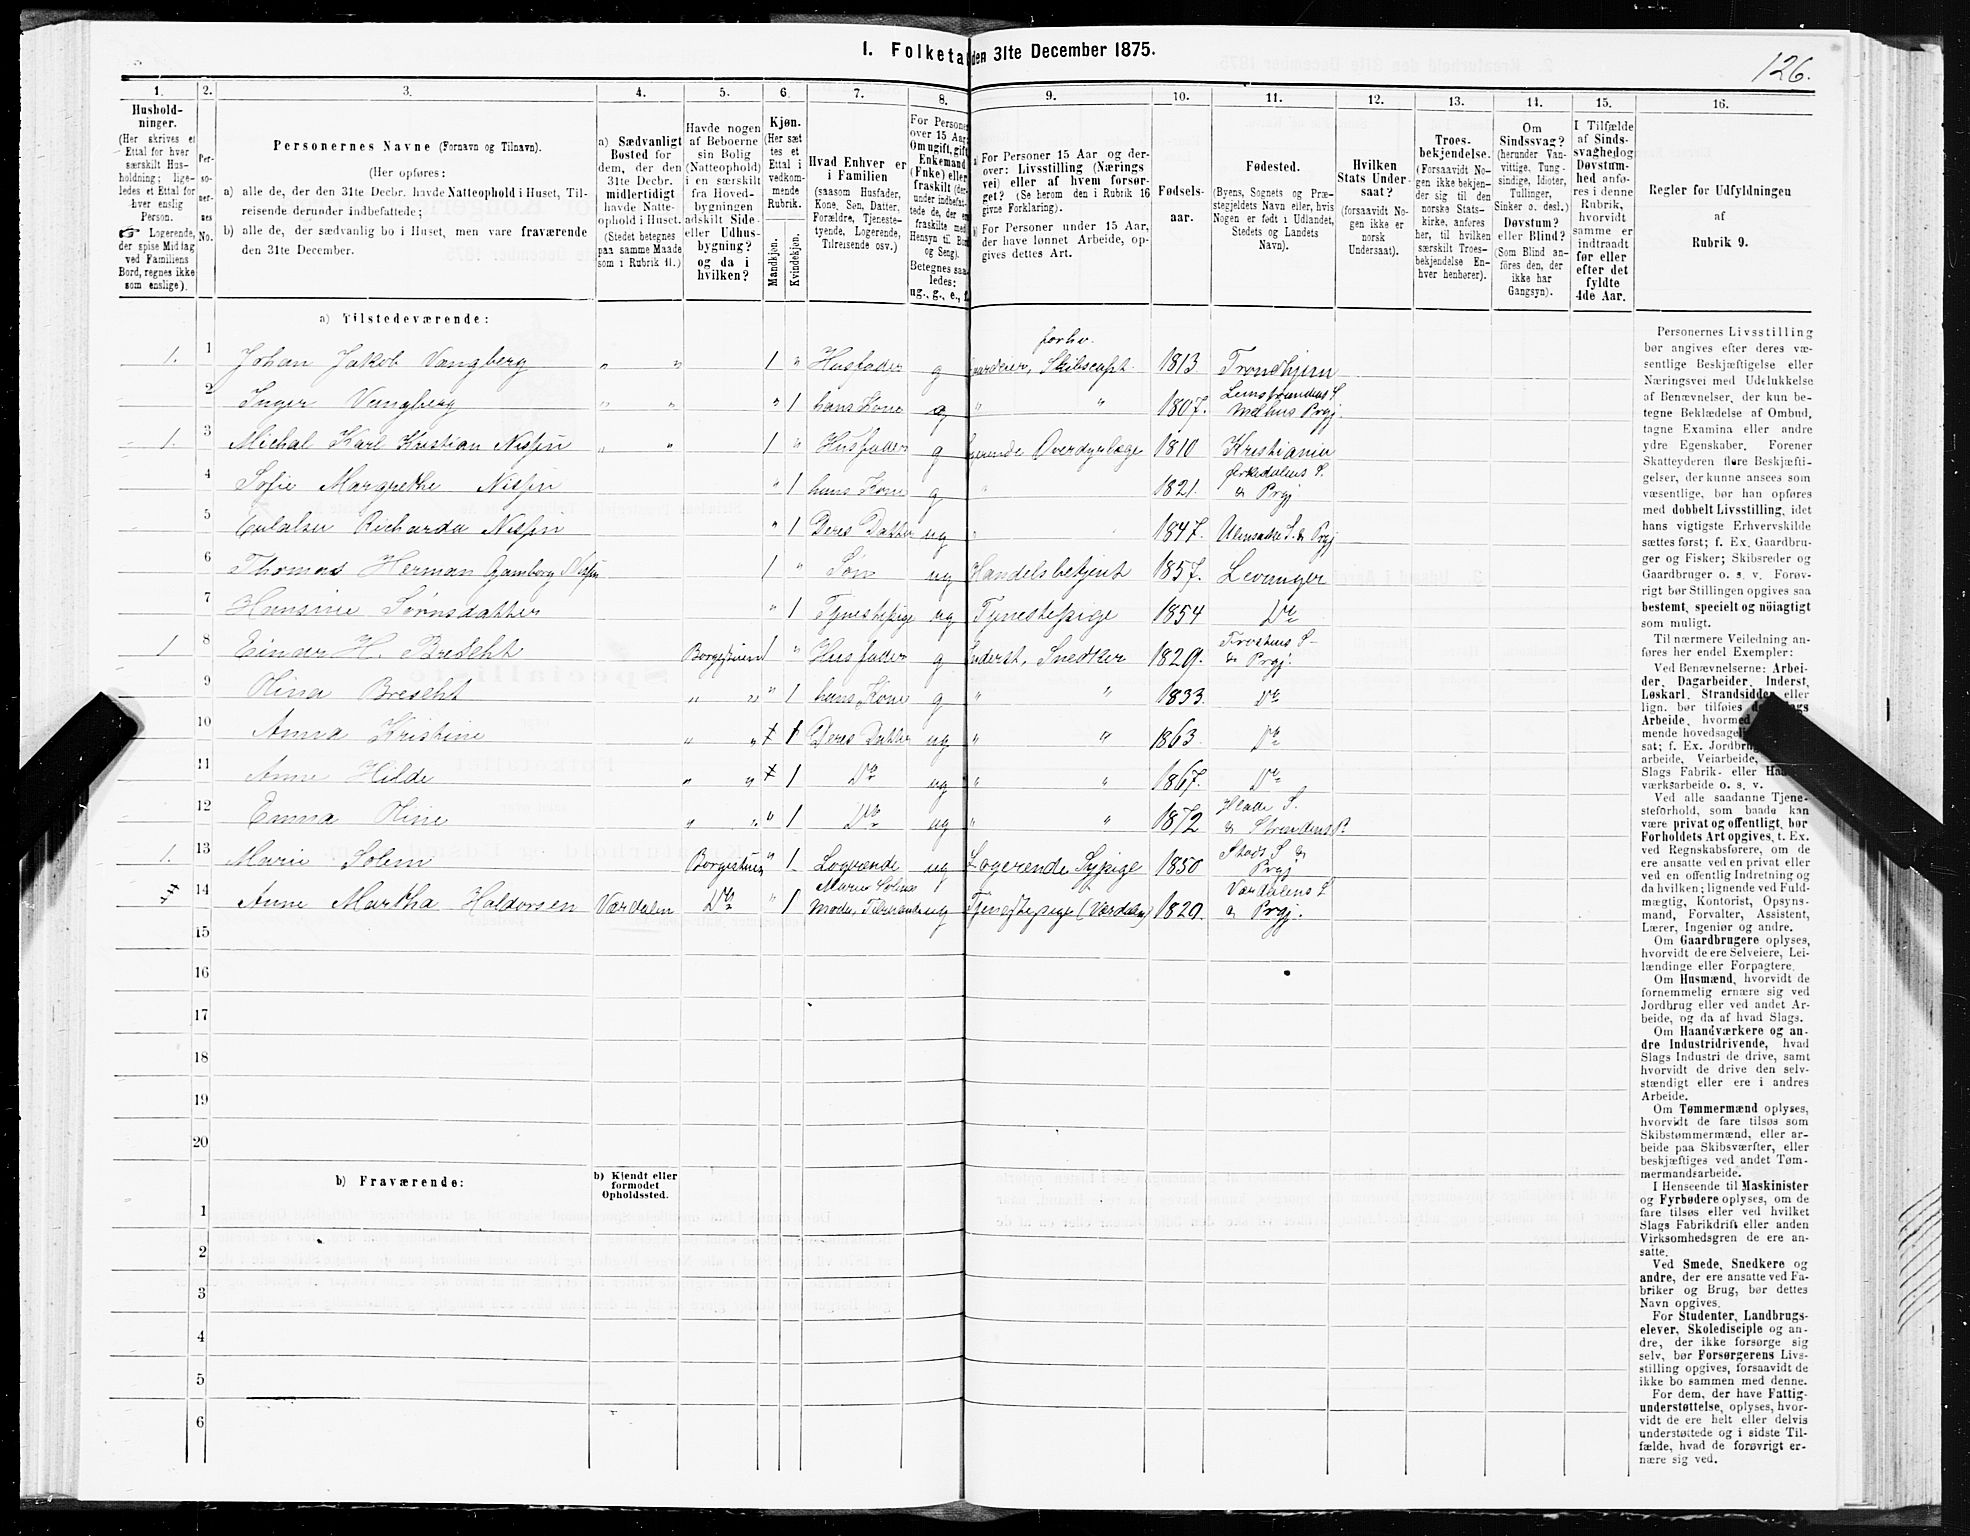 I. Folketal den 31te December 1875.
126.
1. 2. 3. 4. 5. 6. 7. 8. 9. 10. 11. 12. 13. 14. 15. 16.
Hushold-
ninger.
(Her skrives et
Ettal for hver
særskilt Hus-
holdning; lige-
ledes et Ettal for
hver enslig
Person.
☞ Logerende,
der spise Middag
ved Familiens
Bord, regnes ikke
som enslige).
Per-
so-
ner-
nes
No.
Personernes Navne (Fornavn og Tilnavn).
(Her opføres:
a) alle de, der den 31te Decbr. havde Natteophold i Huset, Til-
reisende derunder indbefattede;
b) alle de, der sædvanlig bo i Huset, men vare fraværende
den 31te December.
a) Sædvanligt
Bosted for
dem, der den
31te Decbr.
midlertidigt
havde Natte-
ophold i Huset.
(Stedet betegnes
paa samme Maade
som i Rubrik 11.)
Havde nogen
af Beboerne
sin Bolig
(Natteophold)
i en særskilt
fra Hoved-
bygningen
adskilt Side-
eller Udhus-
bygning?
og da i
hvilken?
Kjøn.
(Her sæt-
tes et
Ettal i
vedkom-
mende
Rubrik.
Mandkjøn.
Kvindekjøn.
Hvad Enhver er
i Familien
(saasom Husfader,
Kone, Søn, Datter,
Forældre, Tjeneste-
tyende, Logerende,
Tilreisende osv.)
For Personer
over 15 Aar:
Om ugift, gift,
Enkemand
(Enke) eller
fraskilt (der-
under indbefat-
tede de, der ere
fraskilte med
Hensyn til Bord
og Seng).
Betegnes saa-
ledes:
ug., g., e., f.
a) For Personer 15 Aar og der-
over: Livsstilling (Nærings-
vei) eller af hvem forsør-
get? (Se herom den i Rubrik 16
givne Forklaring).
b) For Personer under 15 Aar,
der have lønnet Arbeide, op-
gives dettes Art.
Fødsels-
aar.
Fødested.
(Byens, Sognets og Præ-
stegjeldets Navn eller, hvis
Nogen er født i Udlandet,
Stedets og Landets
Navn).
Hvilken
Stats Under-
saat?
(forsaavidt No-
gen ikke er
norsk
Undersaat).
Troes-
bekjendelse.
(Forsaavidt No-
gen ikke bekjen-
der sig til den
norske Stats-
kirke, anføres
her, til hvilken
særskilt Troes-
bekjendelse En-
hver henhører).
Om
Sindssvag?
(herunder Van-
vittige, Tung-
sindige, Idioter,
Tullinger,
Sinker o. desl.)
Døvstum?
eller Blind?
(Som Blind an-
føres den, der
ikke har
Gangsyn).
I Tilfælde
af Sinds-
svaghed og
Døvstum-
hed anfø-
res i denne
Rubrik,
hvorvidt
samme er
indtraadt
før eller
efter det
fyldte
4de Aar.
Regler for Udfyldningen
af
Rubrik 9.
a) Tilstedeværende:
forhv.
1. 1 Johan Jakob Vangberg " " 1 " Husfader g Gaardeier, Skibscapt. 1813 Trondhjem
2 Inger Vangberg " " " 1 hans Kone g " " 1807. Leinstrandens S. Melhus Prgj.
1. 3 Michal Karl Kristian Nissen " " 1 " Husfader g Overdyrlæge 1810 Kristiania
4 Sofie Margrethe Nissen " 1 hans Kone g " 1821. Ørkedalens S. & Prgj
5 Richarda Nissen " 1 Deres Datter ug " 1847. S. & Prgj
6 Thomas Herman Gamborg Nissen 1 " Søn ug Handelsbetjent 1857. Levanger
7 Hansine Sørnsdatter " 1 Tjenestepige ug Tjenestepige 1854 Do
1 8 Einar H. Brescht Borgestuen 1 " Husfader g Inderst, Snedker 1829. Frostens S. & Prgj.
9 Olina Brescht " " " 1 hans Kone g " " 1833. Do
10 Anna Kristine " " 1 Deres Datter ug " " 1863. Do
11 Anne Hilde " " 1 Do ug " " 1867. Do
12 Emma Oline " " " 1 Do ug " " 1872 Hlade S. & Strindens P.
1. 13 Marie Solem Borgestuen " 1 Logerende ug Logerende Sypige 1850 Stods S & Prgj
14 Anne Martha Haldorsen Værdalen Do " 1 Marie Solems Moder, ug Tjenestepige (Værdalen) 1829. Værdalens S & Prgj.
15
16
17
18
19
20
b) Fraværende:
b) Kjendt eller
formodet
Opholdssted.
1
2
3
4
5
6
Personernes Livsstilling
bør angives efter deres væ-
sentlige Beskjæftigelse eller
Næringsvei med Udelukkelse
af Benævnelser, der kun be-
tegne Beklædelse af Ombud,
tagne Examina eller andre
ydre Egenskaber. Forener
Skatteyderen flere Beskjæfti-
gelser, der kunne ansees som
væsentlige, bør han opføres
med dobbelt Livsstilling, idet
hans vigtigste Erhvervskilde
sættes først; f. Ex. Gaardbru-
ger og Fisker; Skibsreder og
Gaardbruger o. s. v. Forøv-
rigt bør Stillingen opgives saa
bestemt, specielt og nøiagtigt
som muligt.
Til nærmere Veiledning an-
føres her endel Exempler:
Ved Benævnelserne: Arbei-
der, Dagarbeider, Inderst,
Løskarl, Strandsidder eller
lign. bør tilføies
Arbeide, hvormed
mende hovedsagelig
sat; f. Ex. Jordbrug
arbeide, Veiarbeide,
Slags Fabrik- eller
værksarbeide o. s. v.
Ved alle saadanne Tjene-
steforhold, som baade kan
være privat og offentligt, bør
Forholdets Art opgives, t. Ex.
ved Regnskabsførere, om de
ere ansatte ved en privat eller
ved en offentlig Indretning og
da hvilken; lignende ved Fuld-
mægtig, Kontorist, Opsyns-
mand, Forvalter, Assistent,
Lærer, Ingeniør og andre.
Om Gaardbrugere oplyses,
hvorvidt de ere Selveiere, Lei-
lændinge eller Forpagtere.
Om Husmænd, hvorvidt de
fornemmelig ernære sig ved
Jordbrug eller ved andet Ar-
beide, og da af hvad Slags.
Om Haandværkere og an-
dre Industridrivende, hvad
Slags Industri de drive, samt
hvorvidt de drive den selv-
stændigt eller ere i andres
Arbeide.
Om Tømmermænd oplyses,
hvorvidt de fare tilsøs som
Skibstømmermænd, eller ar-
beide paa Skibsværfter, eller
beskjæftiges ved andet Tøm-
mermandsarbeide.
I Henseende til Maskinister
og Fyrbødere oplyses, om de
fare tilsøs eller ved hvilket
Slags Fabrikdrift eller anden
Virksomhedsgren de ere an-
satte.
Ved Smede, Snedkere og
andre, der ere ansatte ved Fa-
briker og Brug, bør dettes
Navn opgives.
For Studenter, Landbrugs-
elever, Skoledisciple og an-
dre, der ikke forsørge sig
selv, bør Forsørgerens Livs-
stilling opgives, forsaavidt de
ikke bo sammen med denne.
For dem, der have Fattig-
understøttelse, oplyses, hvor-
vidt de ere helt eller delvis
understøttede og i sidste Til-
fælde, hvad de forøvrigt er-
nære sig ved.